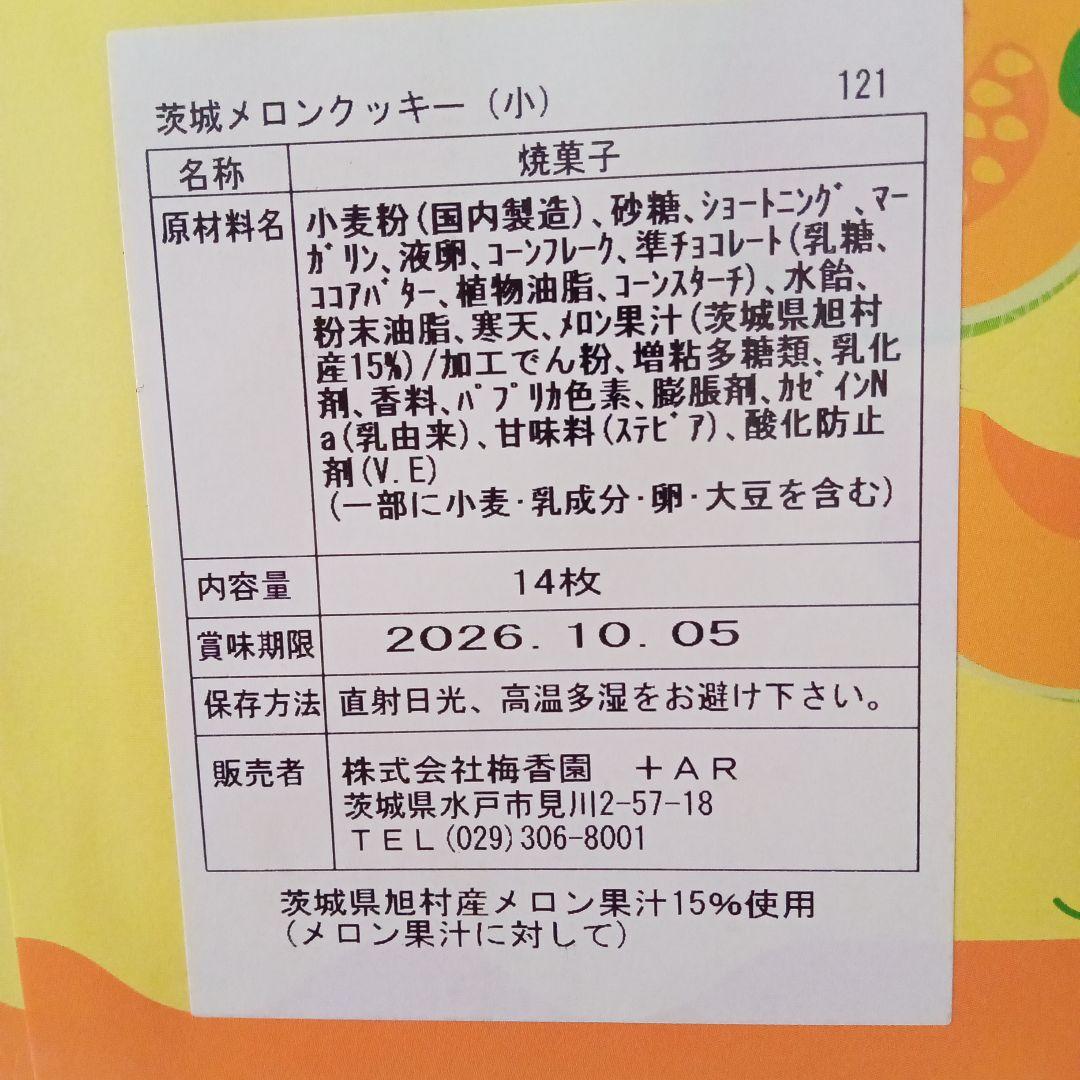 茨城メロンクッキー（小） 121
名称 焼菓子
原材料名 小麦粉(国内製造)、砂糖、ｼｮｰﾄﾆﾝｸﾞ、ﾏｰ
ｶﾞﾘﾝ、液卵、ｺｰﾝﾌﾚｰｸ、準ﾁｮｺﾚｰﾄ(乳糖、
ｺｺｱﾊﾞﾀｰ、植物油脂、ｺｰﾝｽﾀｰﾁ)、水飴、
粉末油脂、寒天、ﾒﾛﾝ果汁(茨城県旭村
産15%)/加工でん粉、増粘多糖類、乳化
剤、香料、ﾊﾟﾌﾟﾘｶ色素、膨脹剤、ｶｾﾞｲﾝN
a(乳由来)、甘味料(ｽﾃﾋﾞｱ)、酸化防止
剤(V.E)
(一部に小麦･乳成分･卵･大豆を含む)
内容量 14枚
賞味期限 2026.10.05
保存方法 直射日光、高温多湿をお避け下さい。
販売者 株式会社梅香園　＋ＡＲ
茨城県水戸市見川2-57-18
ＴＥＬ(029)306-8001
茨城県旭村産メロン果汁15%使用
(メロン果汁に対して)